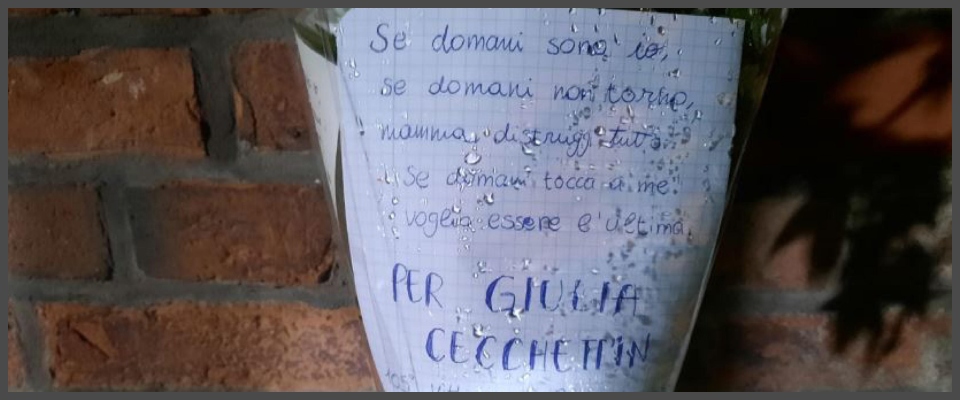 Se domani sono io,
se domani non torno,
mamma, distruggi tutto.
Se domani tocca a me
voglio essere l'ultima.
PER GIULIA
CECCHETTIN